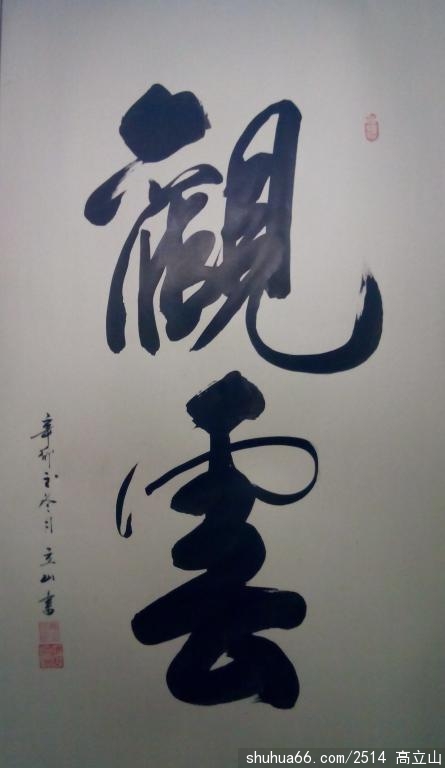 觀雲
辛卯之冬月立山書
shuhua66.com/2514 高立山